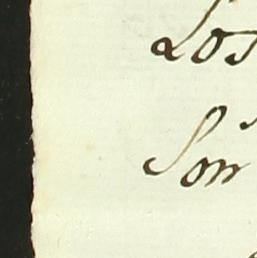 Los
Son